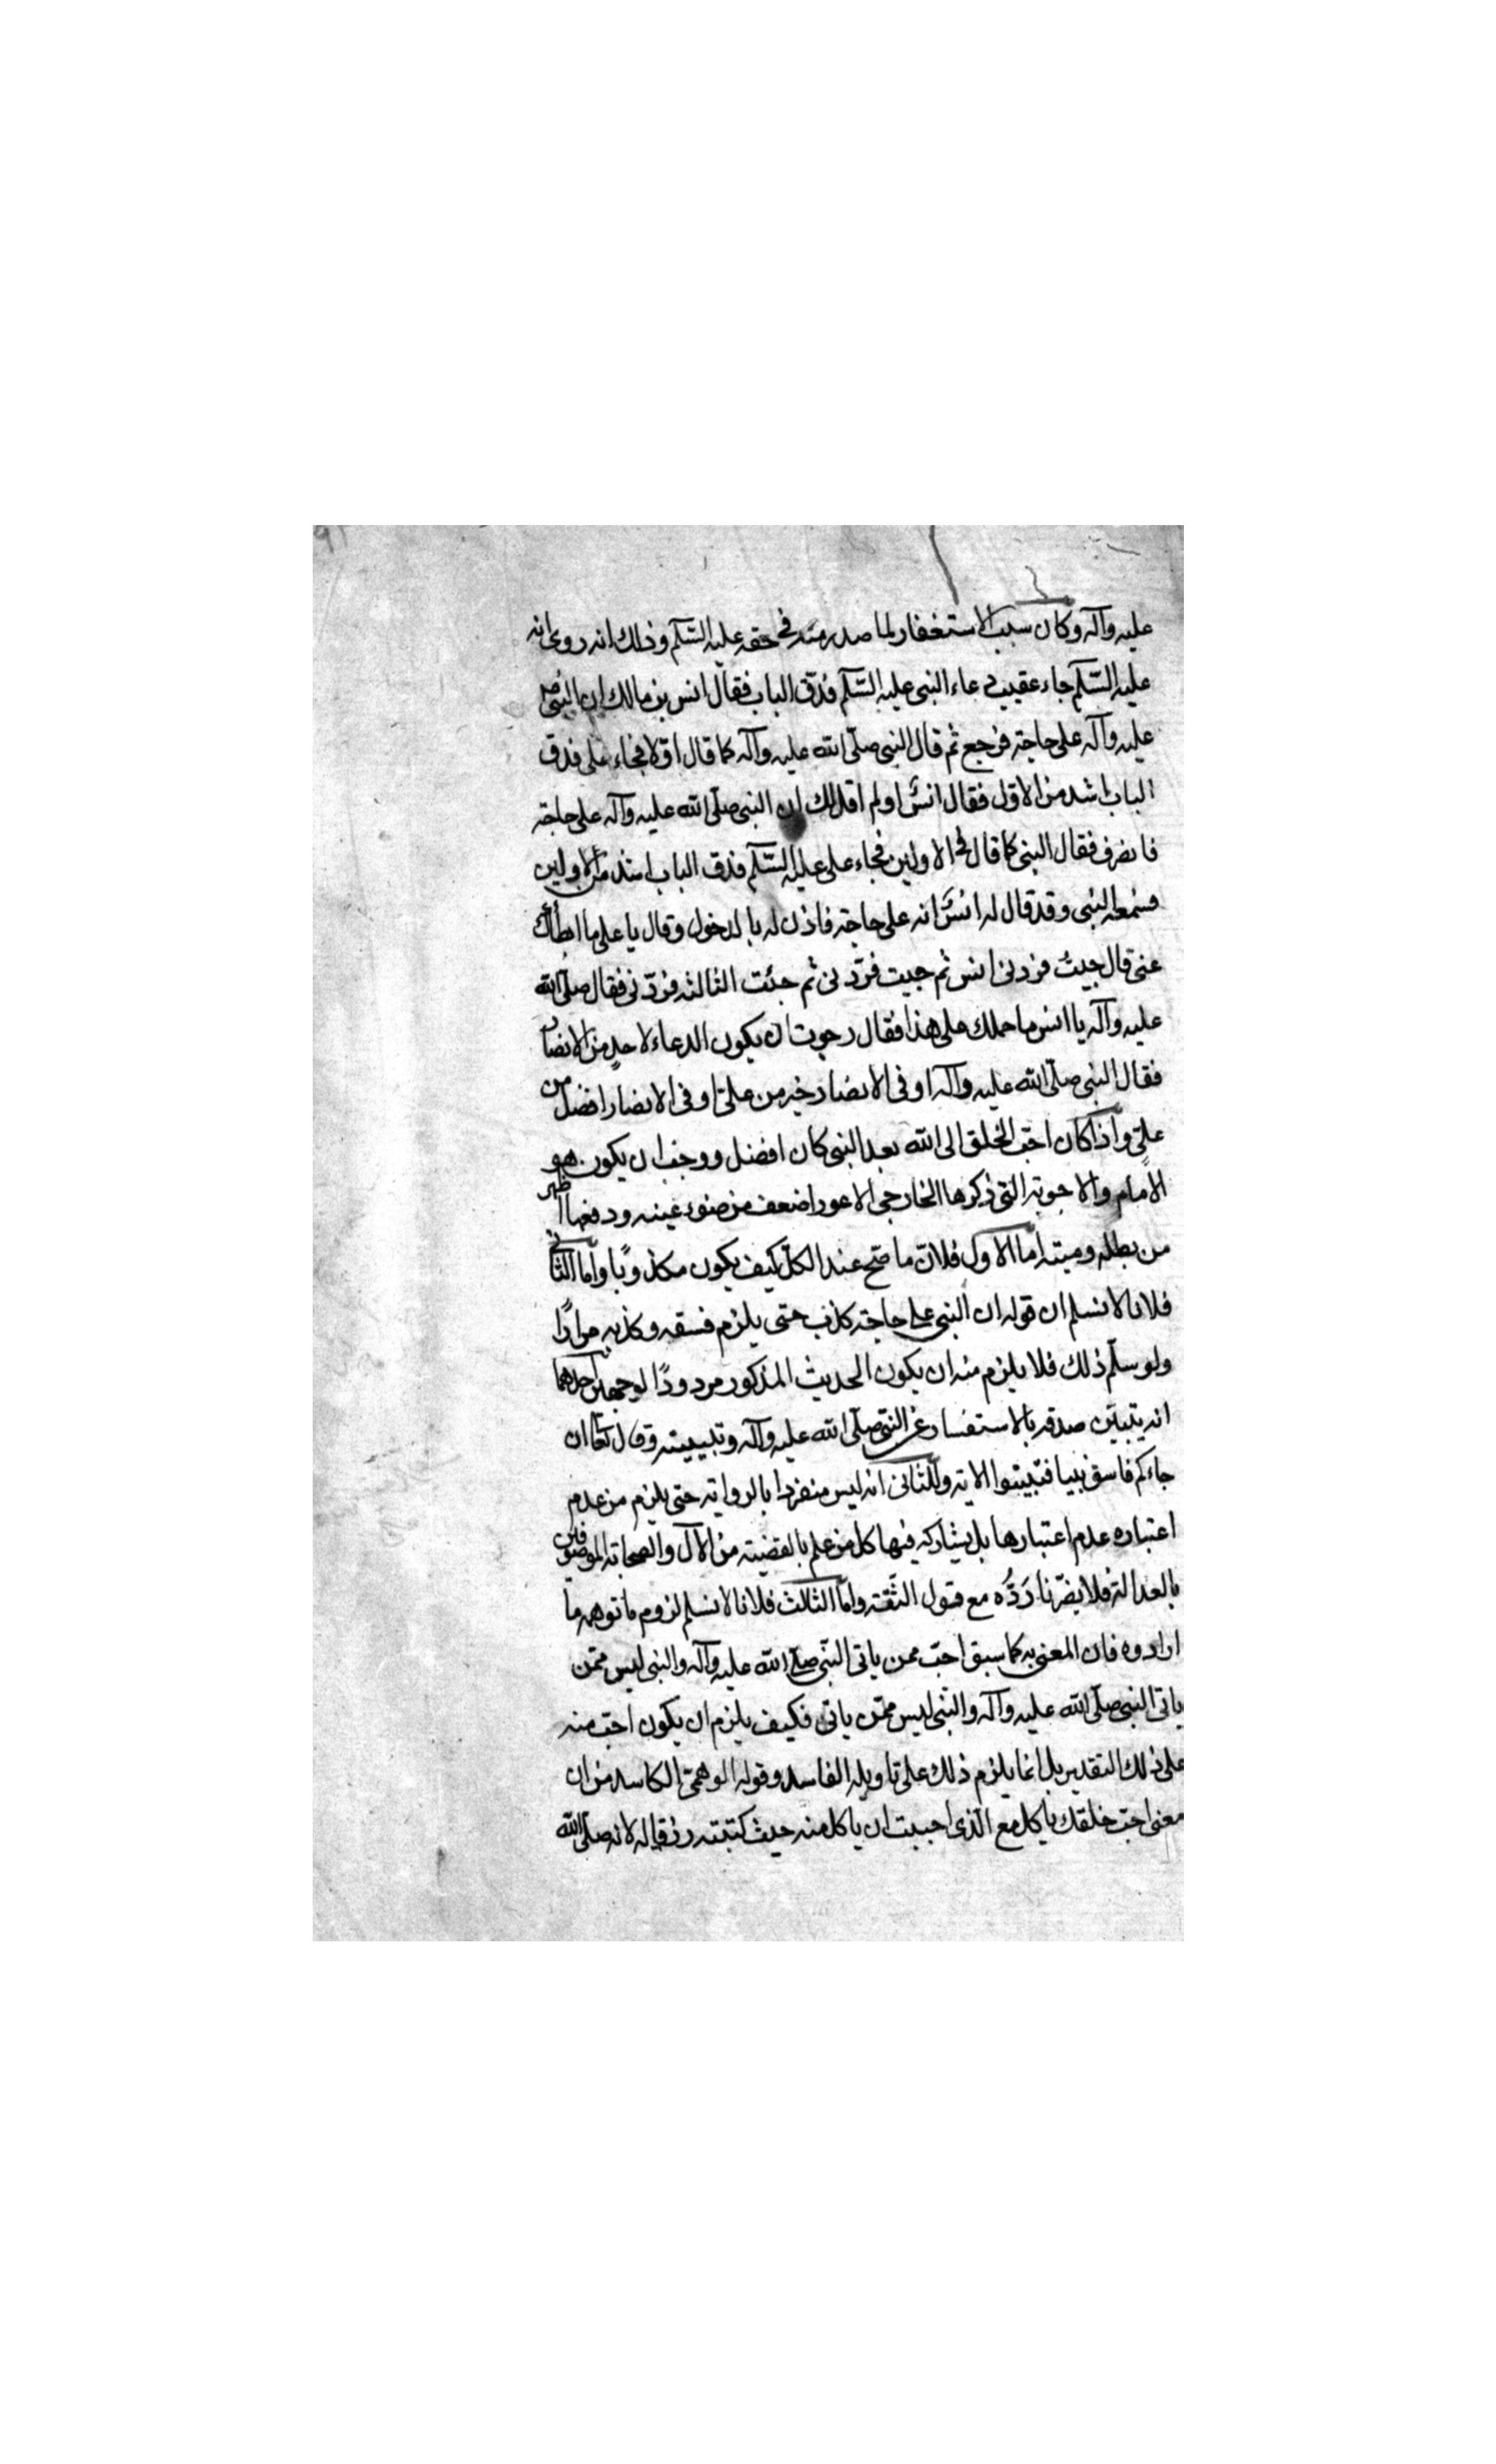 عليه وآله وكان سبب الاستغفار لما صدر منه في حقه عليه السّلم وذلك انه روى انه
عليه السّلم جاء عقيب دعاء النبى عليه السّلم فدقّ الباب فقال انس بن مالك ان النبى ص
عليه وآله على حاجة فرجع ثم قال النبى صلّى الله عليه وآله كما قال اوّلا فجاء على فدق
الباب اشد من الاوّل فقال انس اولم اقل لك ان النبى صلّى الله عليه وآله على حاجة
فانصرف فقال النبى كما قال في الاولين فجاء على عليه السّلم فدق الباب اشد من الاولين
فسمعه النبى وقد قال له انس انه على حاجة فاذن له بالدخول وقال يا على ما ابطأك
عنى قال جيت فردنى انس ثم جيت فردّنى ثم جئت الثالثة فردّنى فقال صلّى الله
عليه وآله يا انس ما حملك على هذا فقال رجوت ان يكون الدعاء لاحد من الانصار
فقال النبى صلّى الله عليه وآله اوفى الانصار خير من علىّ اوفى الانصار افضل من
علىّ واذا كان احبّ الخلق الى الله بعد النبى كان افضل ووجب ان يكون هو
الامام والاجوبة التى ذكرها الخارجى الاعور اضعف من ضوء عينه ودفعها اظهر
من بطله وميته امّا الاول فلانّ ما صّح عند الكلّ كيف يكون مكذوبًا وامّا الثانى
فلانا لا نسلم ان قوله ان النبى على حاجة كذب حتى يلزم فسقه وكذبه مرارًا
ولو سلّم ذلك فلا يلزم منه ان يكون الحديث المذكور مردودًا لوجهين احدهما
انه يتبيّن صدقه بالاستفسار عن النبىّ صلّى الله عليه وآله وتبييته وقال تعا ان
جاءكم فاسق بنبيا فتبيّنوا الاية والثانى انه ليس منفردا بالرواية حتى يلزم من عدم
اعتباره عدم اعتبارها بل يشاركه فيها كل من علم بالقضية من الآل والصحابة الموصوفين
بالعدالة فلا يضرّنا رَدُّه مع قبول الثّقة وامّا الثالث فلانا لا نسلم لزوم ما توهمه ما
ارادوه فان المعنى به كما سبق احبّ ممن ياتى النبّى صلّى الله عليه وآله والنبى ليس ممّن
ياتى النبى صلّى الله عليه وآله والنبى ليس ممّن ياتى فكيف يلزم ان يكون احبّ منه
على ذلك التقدير بل انما يلزم ذلك على تاويله الفاسد وقوله الوهمىّ الكاسد من ان
معنى احبّ خلقك ياكل مع الّذى احببت ان ياكل منه حيث كتبته رزقا له لانه صلّى الله